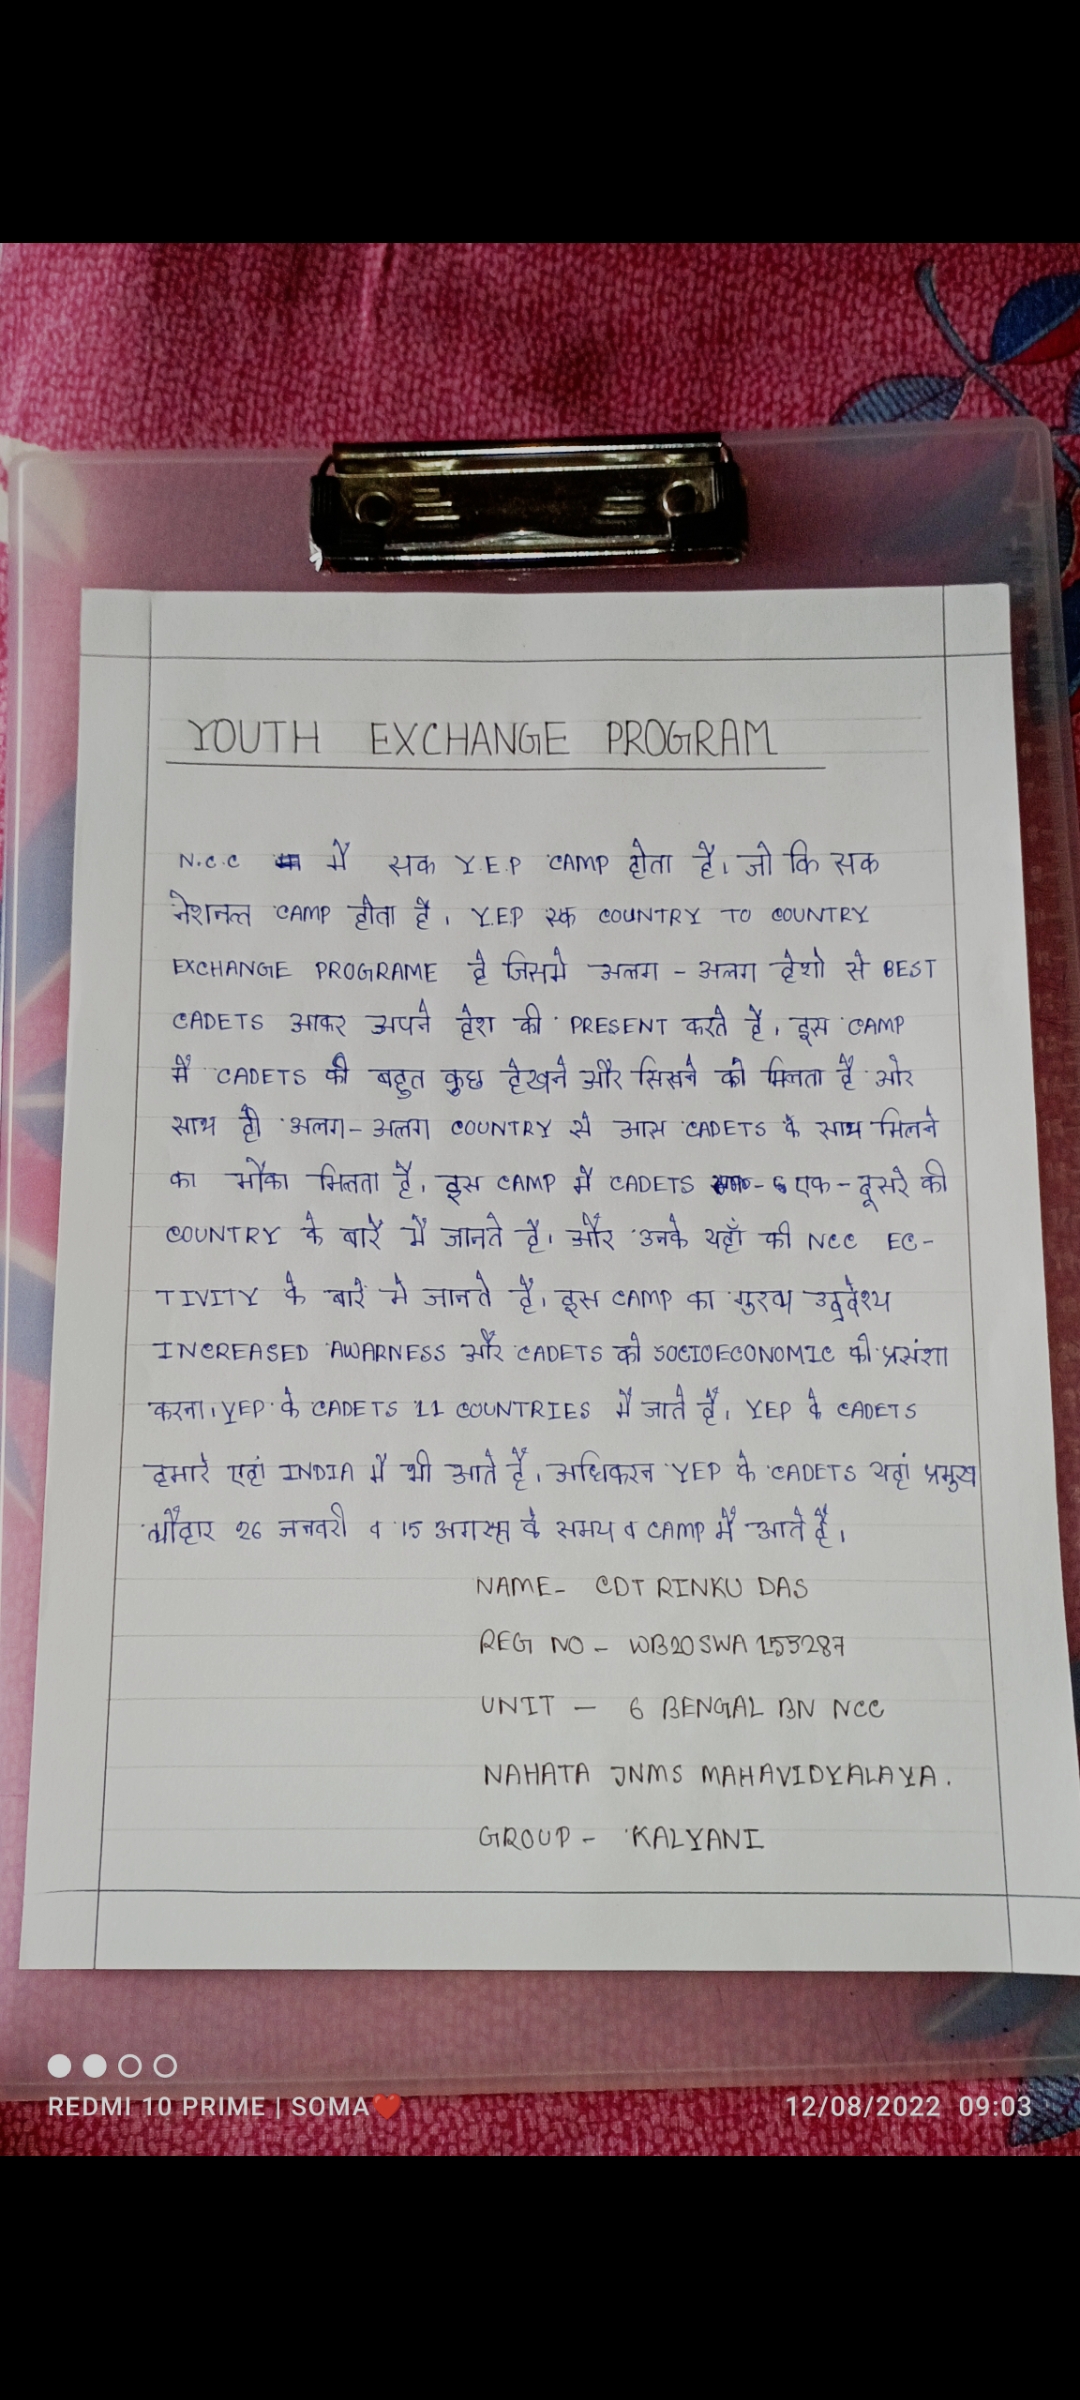 YOUTH EXCHANGE PROGRAM
N.C.C में सक Y.E.P CAMP होता है। जो कि सक
नेशनल CAMP होता है। Y.E.P एक COUNTRY TO COUNTRY
EXCHANGE PROGRAME है जिसमे अलग - अलग देशो से BEST
CADETS आकर अपने देश की PRESENT करते है। इस CAMP
में CADETS की बहुत कुछ देखने और सिसने को मिलता है ओर
साथ ही अलग - अलग COUNTRY से आस CADETS के साथ मिलने
का मौका मिलता है। इस CAMP में CADETS एक - दूसरे की
COUNTRY के बारें में जानते है। और उनके यहाँ की NCC EC-
TIVITY के बारें मे जानते हैं। इस CAMP का मुख्य उद्देश्य
INCREASED AWARNESS और CADETS को SOCIOECONOMIC की प्रसंशा
करना। YEP के CADETS 11 COUNTRIES में जाते हैं। YEP के CADETS
हमारे एहां INDIA में भी आते हैं। अधिकरन YEP के CADETS यहां प्रमुख
त्यौहार 26 जनवरी व 15 अगस्त के समय व CAMP में आते हैं।
NAME- CDT RINKU DAS
REG NO - WB20SWA153287
UNIT - 6 BENGAL BN NCC
NAHATA JNMS MAHAVIDYALAYA.
GROUP - KALYANI
REDMI 10 PRIME | SOMA❤️
12/08/2022 09:03